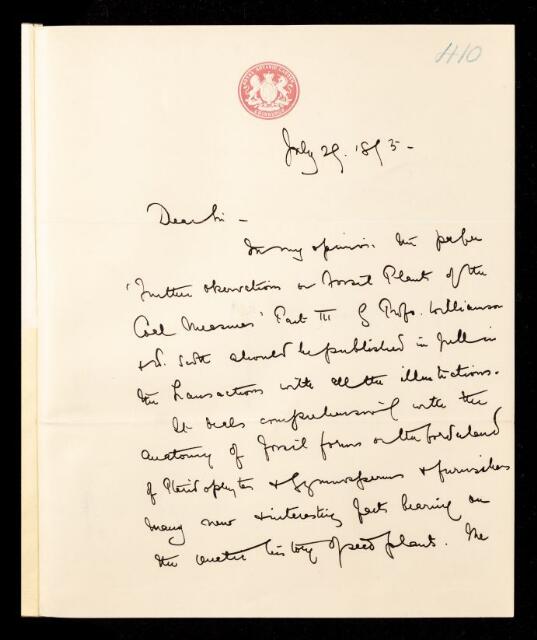 410
July 29. 1895 -
Dear Sir -
In my opinion. the paper
'Further observations on Fossil Plants of the
Coal Measures' Part III by Profs. Williamson
+ D. Scott should be published in full in
the Transactions with all the illustrations.
It deals comprehensively with the
anatomy of fossil forms on the borderland
of Pteridophytes + Gymnosperms + furnishes
many new + interesting facts bearing on
the history of seed plants. The